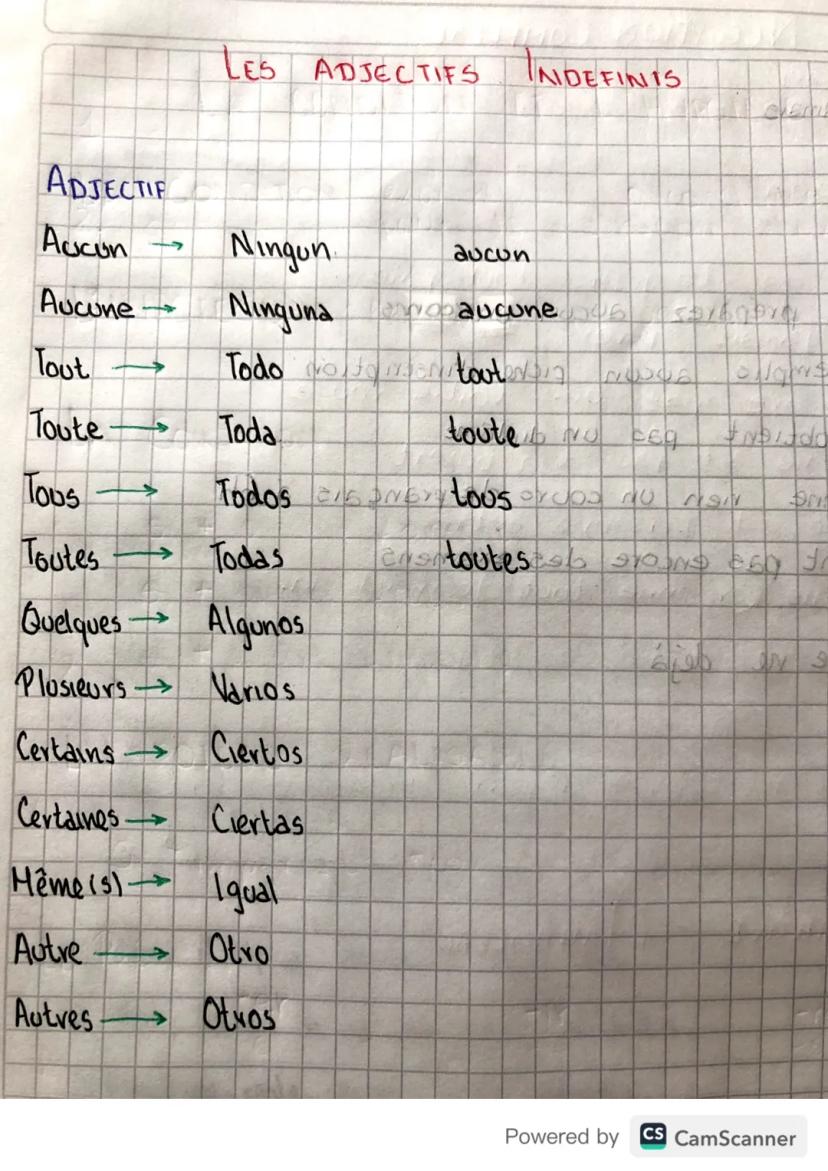 LES ADJECTIFS INDEFINIS
ADJECTIF
Aucun → Ningun aucun
Aucune → Ninguna aucune
Tout → Todo tout
Toute → Toda toute
Tous → Todos tous
Toutes → Todas toutes
Quelques → Algunos
Plusieurs → Varios
Certains → Ciertos
Certaines → Ciertas
Même(s) → Igual
Autre → Otro
Autres → Otros
Powered by CS CamScanner